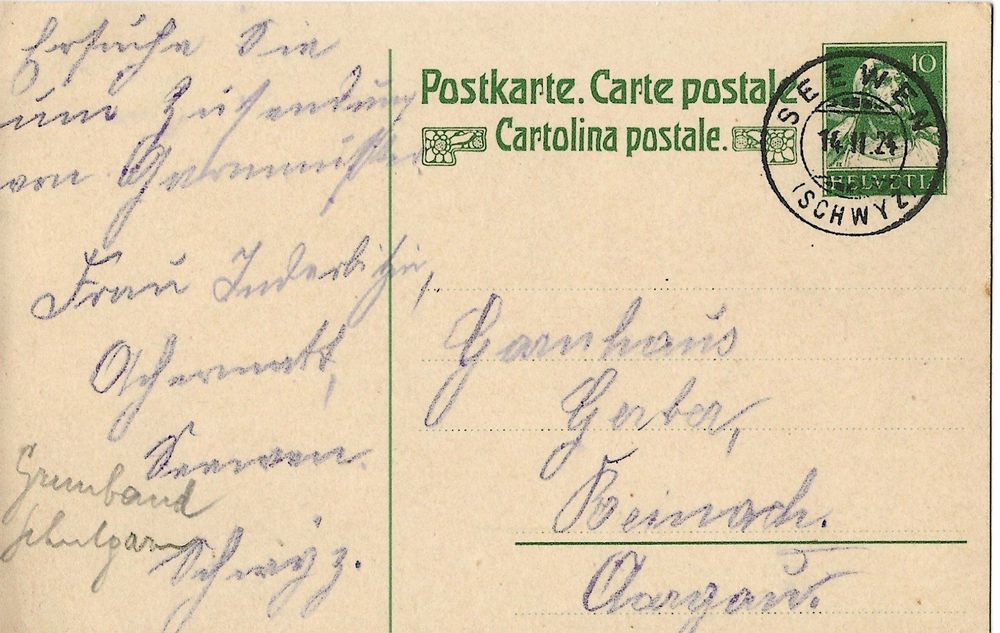 Ersuche Sie
um Zusendung
von Garnmuster.
Frau Inderbitzin,
Achermatt,
Seewen.
Schwyz.
Grumband
Schulgarn
Postkarte. Carte postale
Cartolina postale.
10
HELVETI
SEEWEN
14.II.24
(SCHWYZ)
Garnhaus
Gerber,
Reinach.
Aargau.